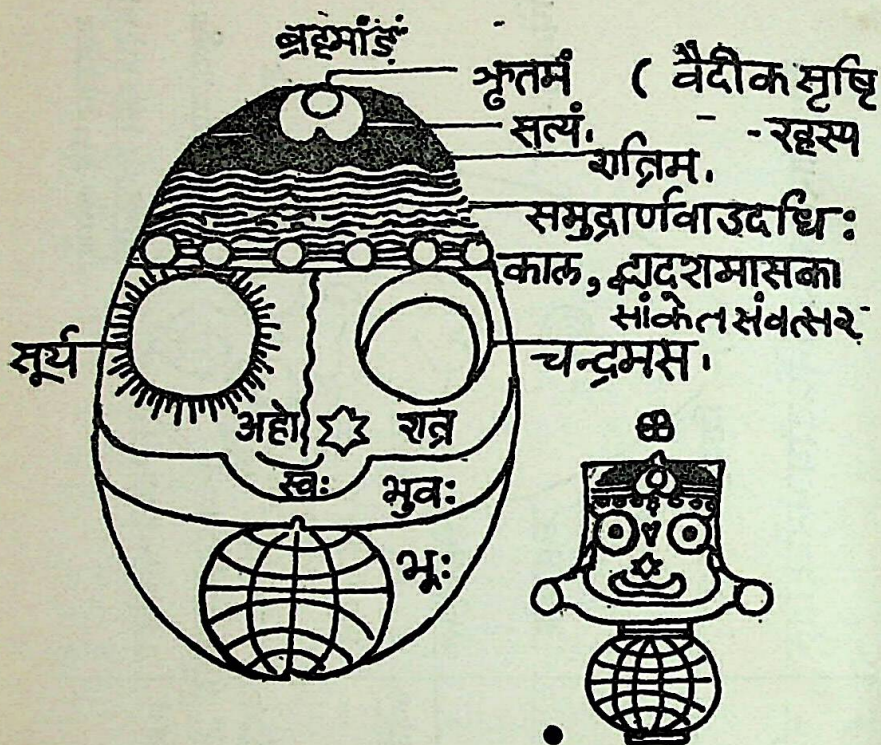 ब्रह्मांडं
ऋतमं ( वैदीक सृष्टि
सत्यं. - - रहस्य
रात्रिम.
समुद्रार्णवाउदधि:
काल, द्वादशमासका
सांकेत संवत्सर
सूर्य
चन्द्रमस.
अहो रात्र
स्व: भुव:
भू: